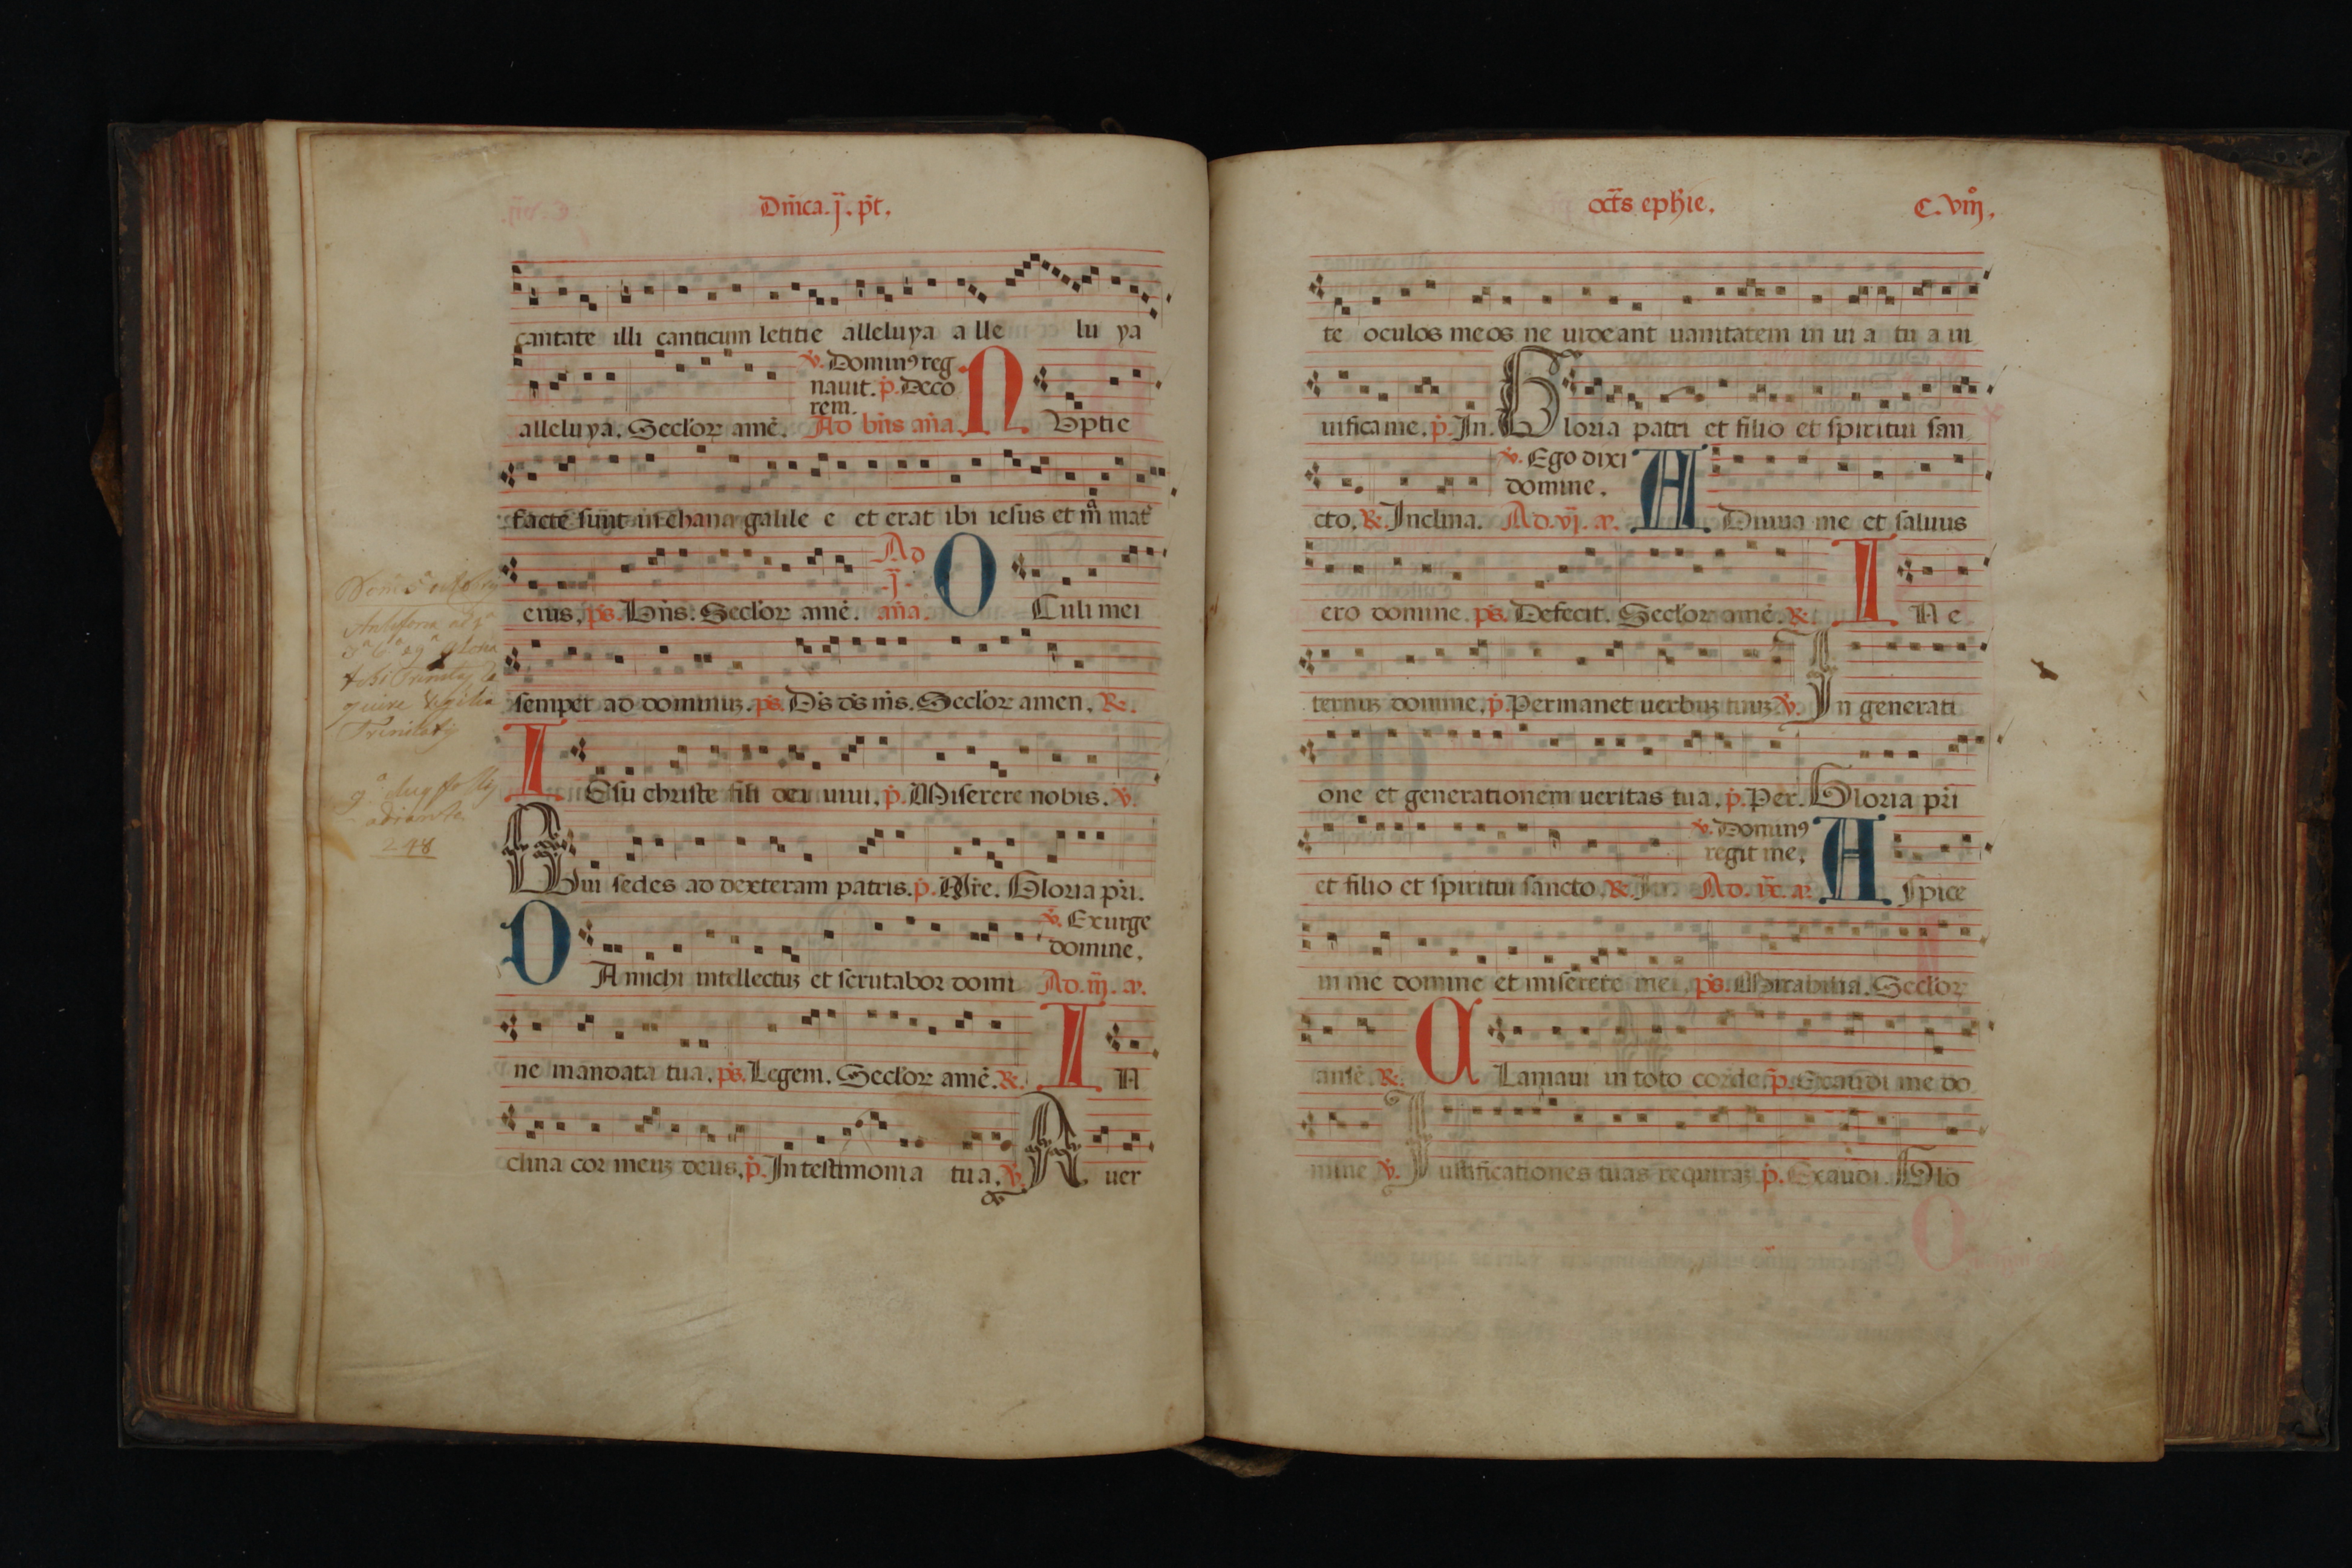 Dm̄ica. j. p̄t.
cantate illi canticum letitie alleluya a lle lu ya
v̄. Dominꝰ reg
nauit. p̄. Deco
rem.
alleluya. Secl'oꝝ amē. Ad bn̄s an̄a. N Vptie
facte sunt in chana galile e et erat ibi iesus et m̄ mat̄
Ad
eius. ps̄. Bn̄s. Secl'oꝝ amē. j. an̄a. O Culi mei
semper ad dominuꝫ. ps̄. Ds̄ ds̄ ms̄. Secl'oꝝ amen. R̄.
I Esu christe fili dei uiui. p̄. Miserere nobis. v̄.
Qui sedes ad dexteram patris. p̄. Mr̄e. Gloria pr̄i.
v̄. Exurge
domine.
D A michi intellectuꝫ et scrutabor domi Ad. iij. a.
ne mandata tua. ps̄. Legem. Secl'oꝝ amē. R̄. I N
clina cor meuꝫ deus. p̄. In testimonia tua. v̄. A uer
Dom
Trinitatis
248
oct̄s eph̄ie. C. viijº.
te oculos meos ne uideant uanitatem in ui a tu a ui
uifica me. p̄. In. Gloria patri et filio et spiritui san
v̄. Ego dixi
domine.
cto. R̄. Inclina. Ad. vj. a. A Diuua me et saluus
ero domine. ps̄. Defecit. Secl'oꝝ amē. R̄. I N e
ternuꝫ domine. p̄. Permanet uerbuꝫ tuuꝫ v̄. In generati
one et generationem ueritas tua. p̄. Per. Gloria pr̄i
v̄. Dominꝰ
regit me.
et filio et spiritui sancto. R̄. In. Ad. ix. a. A spice
in me domine et miserere mei. ps̄. Mirabilia. Secl'oꝝ
amē. R̄. C Lamaui in toto corde. p̄. Exaudi me do
mine v̄. Iustificationes tuas requiraꝫ p̄. Exaudi. Glo